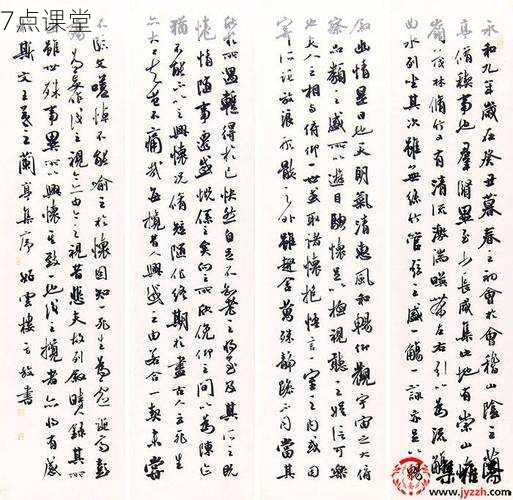 7点课堂
永和九年歲在癸丑暮春之初會於會稽山陰之蘭
亭脩稧事也羣賢畢至少長咸集此地有崇山峻
嶺茂林脩竹又有清流激湍暎帶左右引以為流觴
曲水列坐其次雖無絲竹管弦之盛一觴一詠亦足以暢
叙幽情是日也天朗氣清惠風和暢仰觀宇宙之大俯
察品類之盛所以遊目騁懷足以極視聽之娛信可樂
也夫人之相與俯仰一世或取諸懷抱悟言一室之內或因
寄所託放浪形骸之外雖趣舍萬殊靜躁不同當其
欣於所遇輒得於己快然自足不知老之將至及其所之既
惓情隨事遷感慨係之矣向之所欣俛仰之間以為陳迹
猶不能不以之興懷況脩短隨化終期於盡古人云死生
亦大矣豈不痛哉每攬昔人興感之由若合一契未嘗
不臨文嗟悼不能喻之於懷固知一死生為虛誕齊彭
殤為妄作後之視今亦由今之視昔悲夫故列叙時人錄其所
述雖世殊事異所以興懷其致一也後之攬者亦將有感
於斯文王羲之蘭亭集序 雲樓方放書
集雅斋
www.jyzzh.com